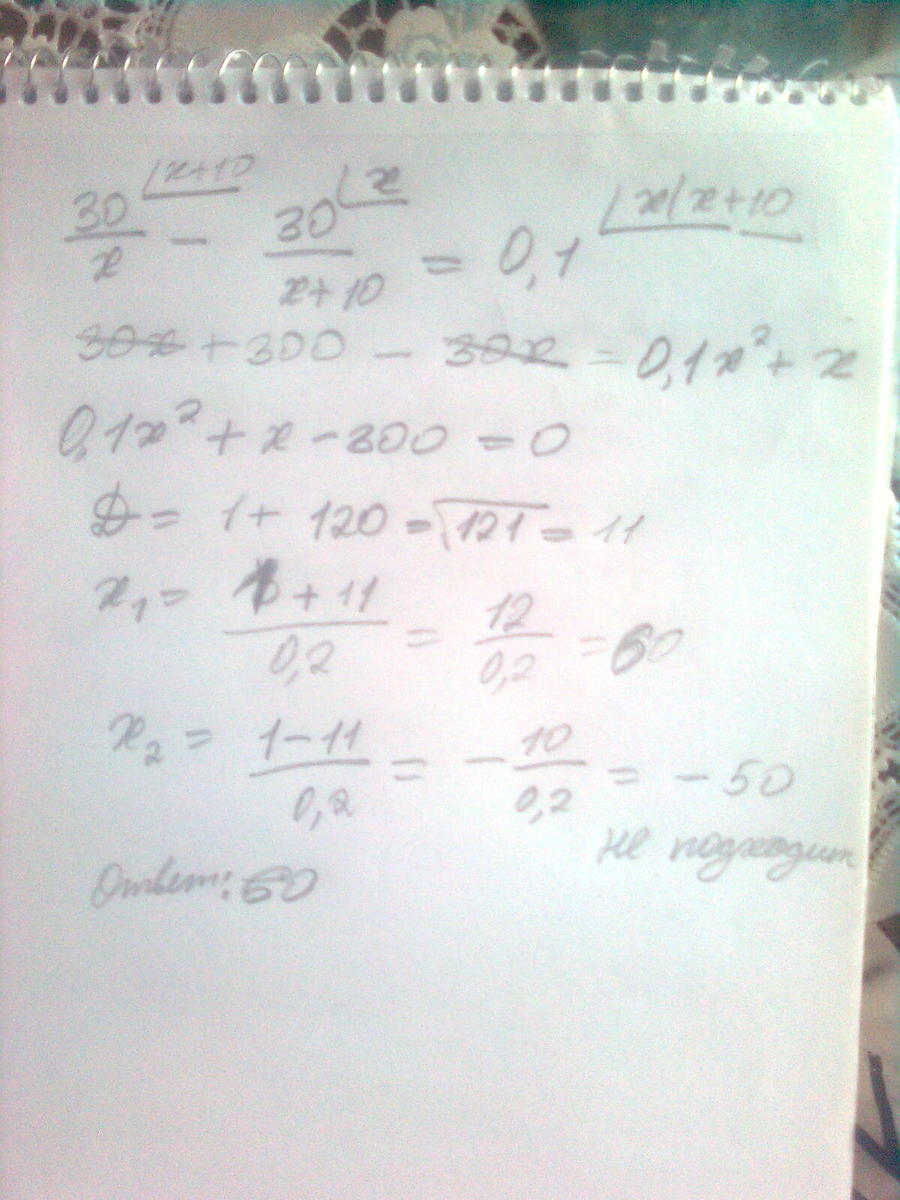 30/x ⌊x+10 − 30/(x+10) ⌊x = 0,1 ⌊x(x+10
30x + 300 − 30x = 0,1x² + x
0,1x² + x − 300 = 0
D = 1 + 120 = √121 = 11
x₁ = (1 + 11)/0,2 = 12/0,2 = 60
x₂ = (1 − 11)/0,2 = −10/0,2 = −50
не подходит
Ответ: 60